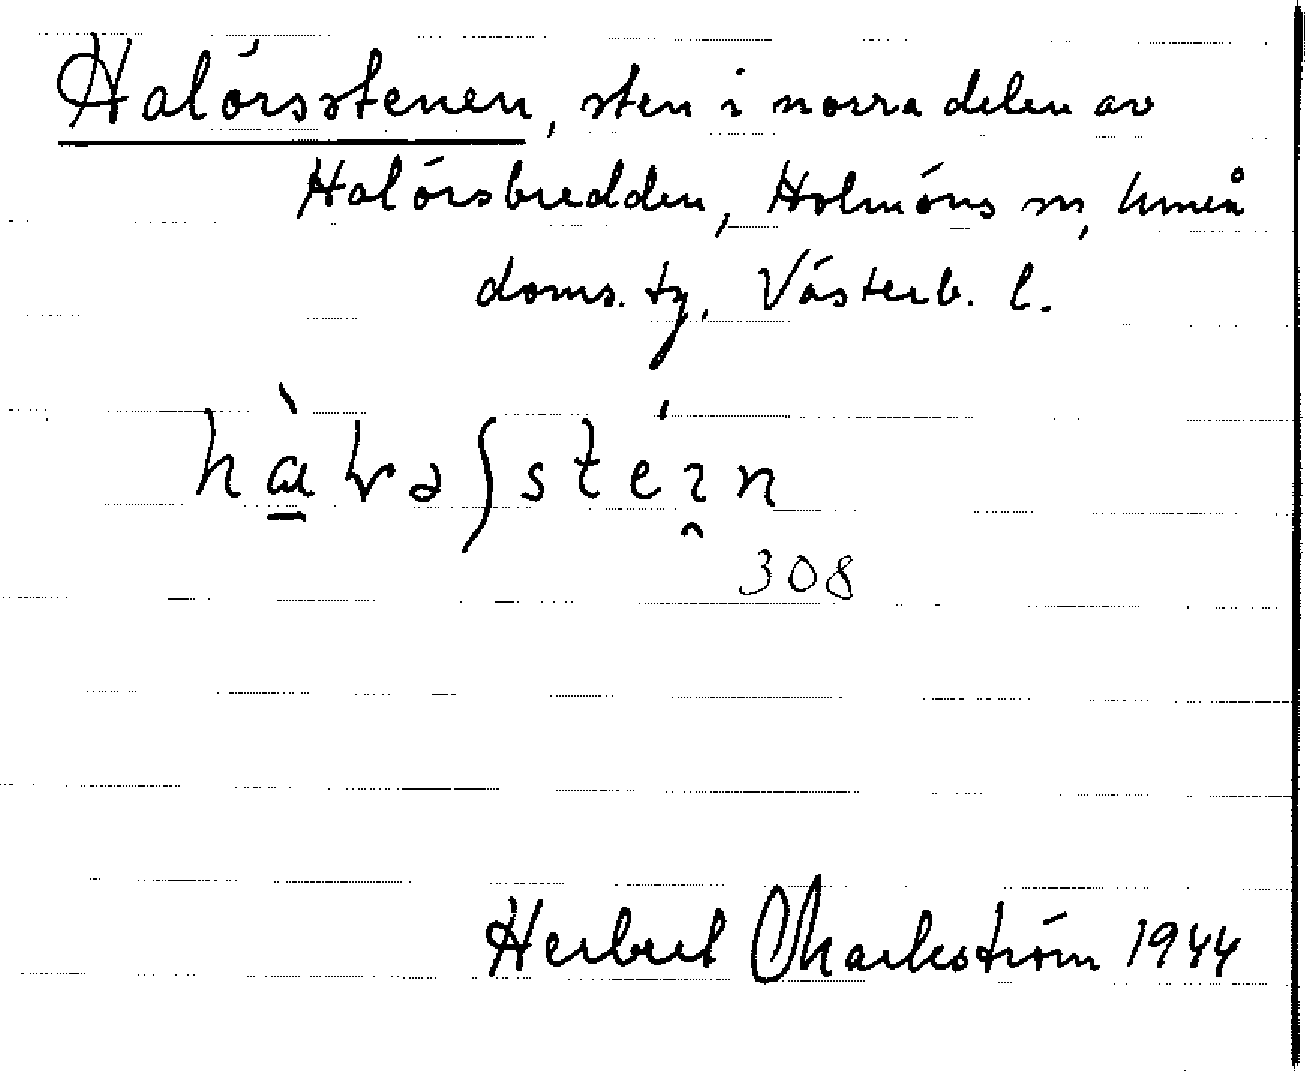 Halörsstenen, sten i norra delen av
Halörsbredden, Holmöns sn, Umeå
doms. tg, Västerb. l.
308
Herbert Markström 1944